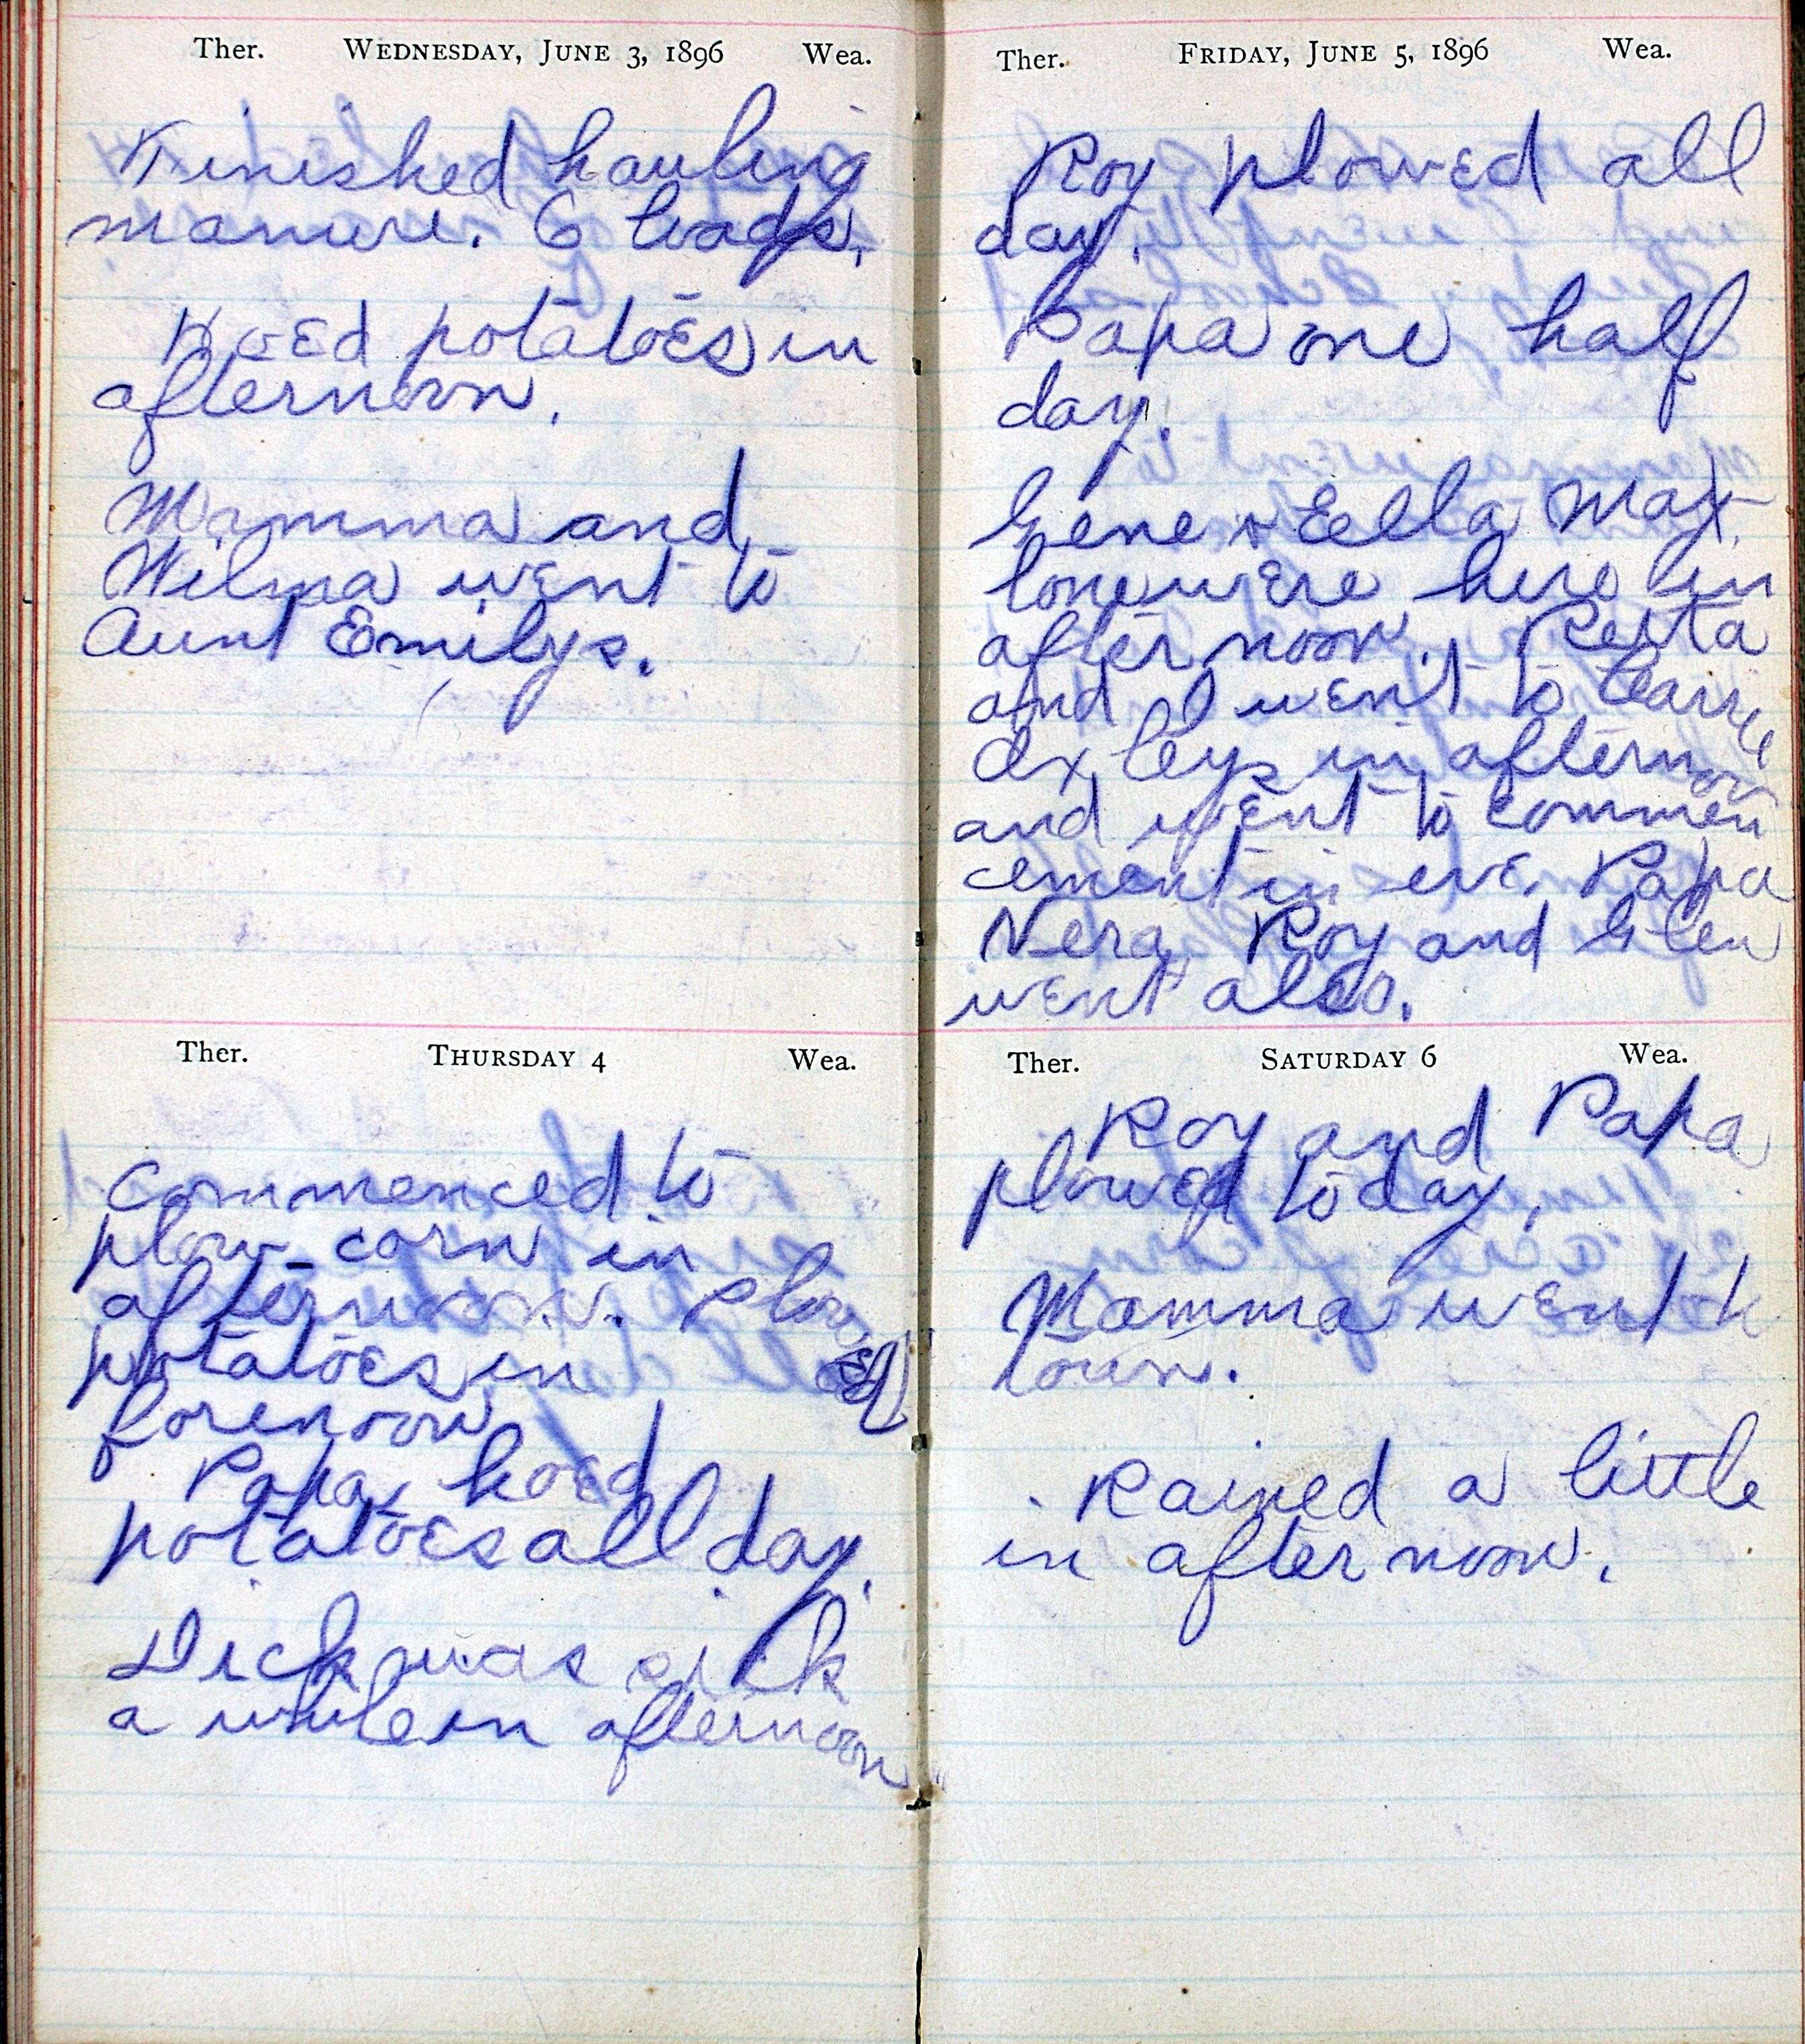 Ther. WEDNESDAY, JUNE 3, 1896 Wea.
Finished hauling
manure. 6 loads.
Hoed potatoes in
afternoon.
Mamma and
Wilma went to
Aunt Emilys.
Ther. THURSDAY 4 Wea.
Commenced to
plow corn in
afternoon. Plowed
potatoes in
forenoon
Papa hoed
potatoes all day.
Dick was sick
a while in afternoon
Ther. FRIDAY, JUNE 5, 1896 Wea.
Roy plowed all
day.
Papa one half
day.
Gene & Eella Max-
lone were here in
after noon. Resta
and I went to Carrie
Exleys in afternoon
and went to commen
cement in eve. Papa
Vera Roy and Glen
went also.
Ther. SATURDAY 6 Wea.
Roy and Papa
plowed today.
Mamma went to
town.
Rained a little
in after noon.